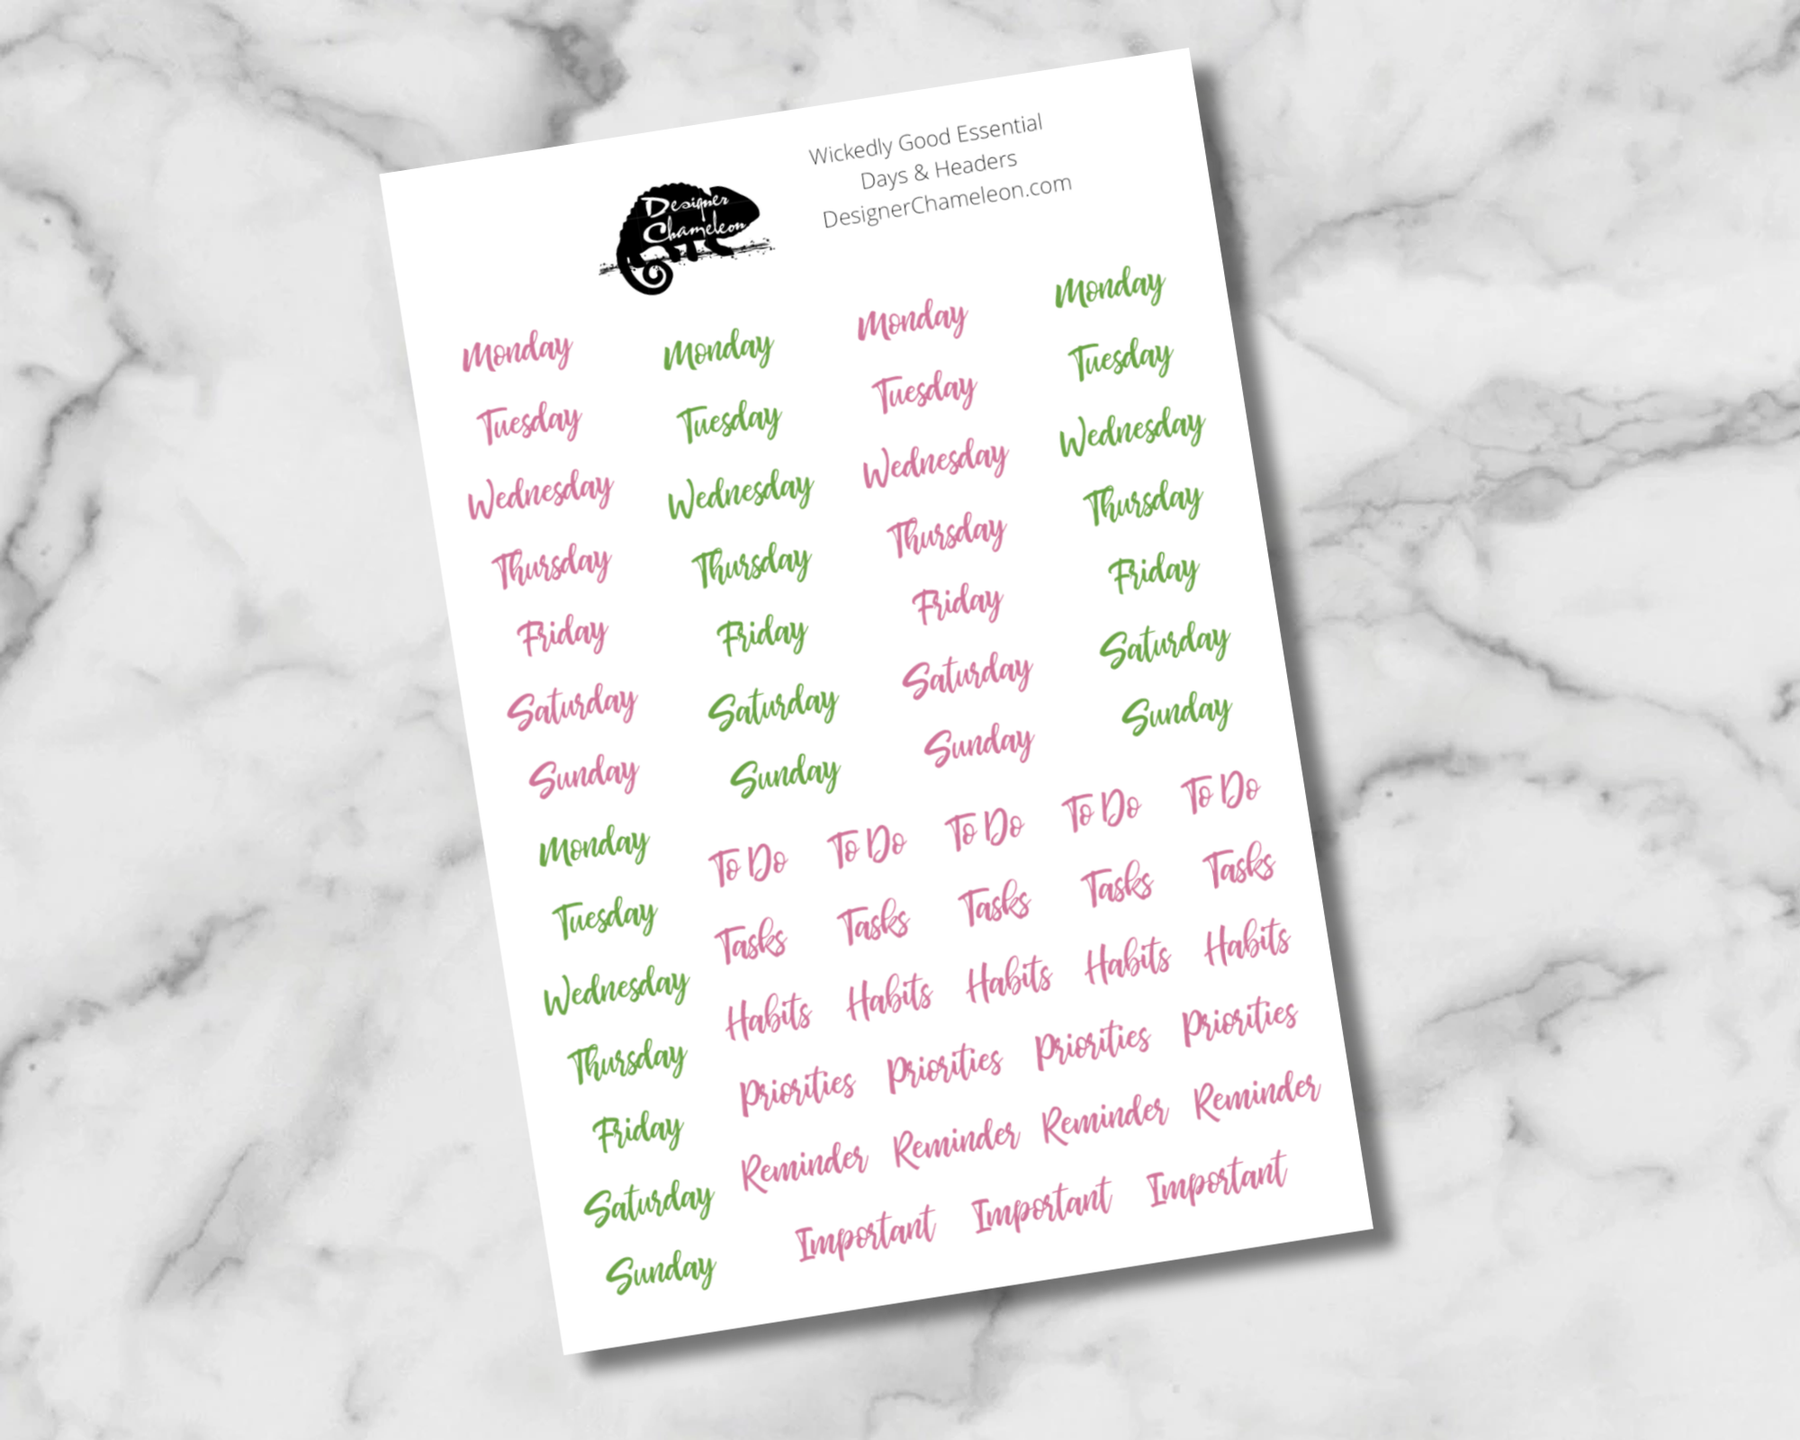 Designer
Chameleon
Wickedly Good Essential
Days & Headers
DesignerChameleon.com
Monday Monday Monday Monday
Tuesday Tuesday Tuesday Tuesday
Wednesday Wednesday Wednesday Wednesday
Thursday Thursday Thursday Thursday
Friday Friday Friday Friday
Saturday Saturday Saturday Saturday
Sunday Sunday Sunday Sunday
Monday
Tuesday
Wednesday
Thursday
Friday
Saturday
Sunday
To Do To Do To Do To Do To Do
Tasks Tasks Tasks Tasks Tasks
Habits Habits Habits Habits Habits
Priorities Priorities Priorities Priorities
Reminder Reminder Reminder Reminder
Important Important Important